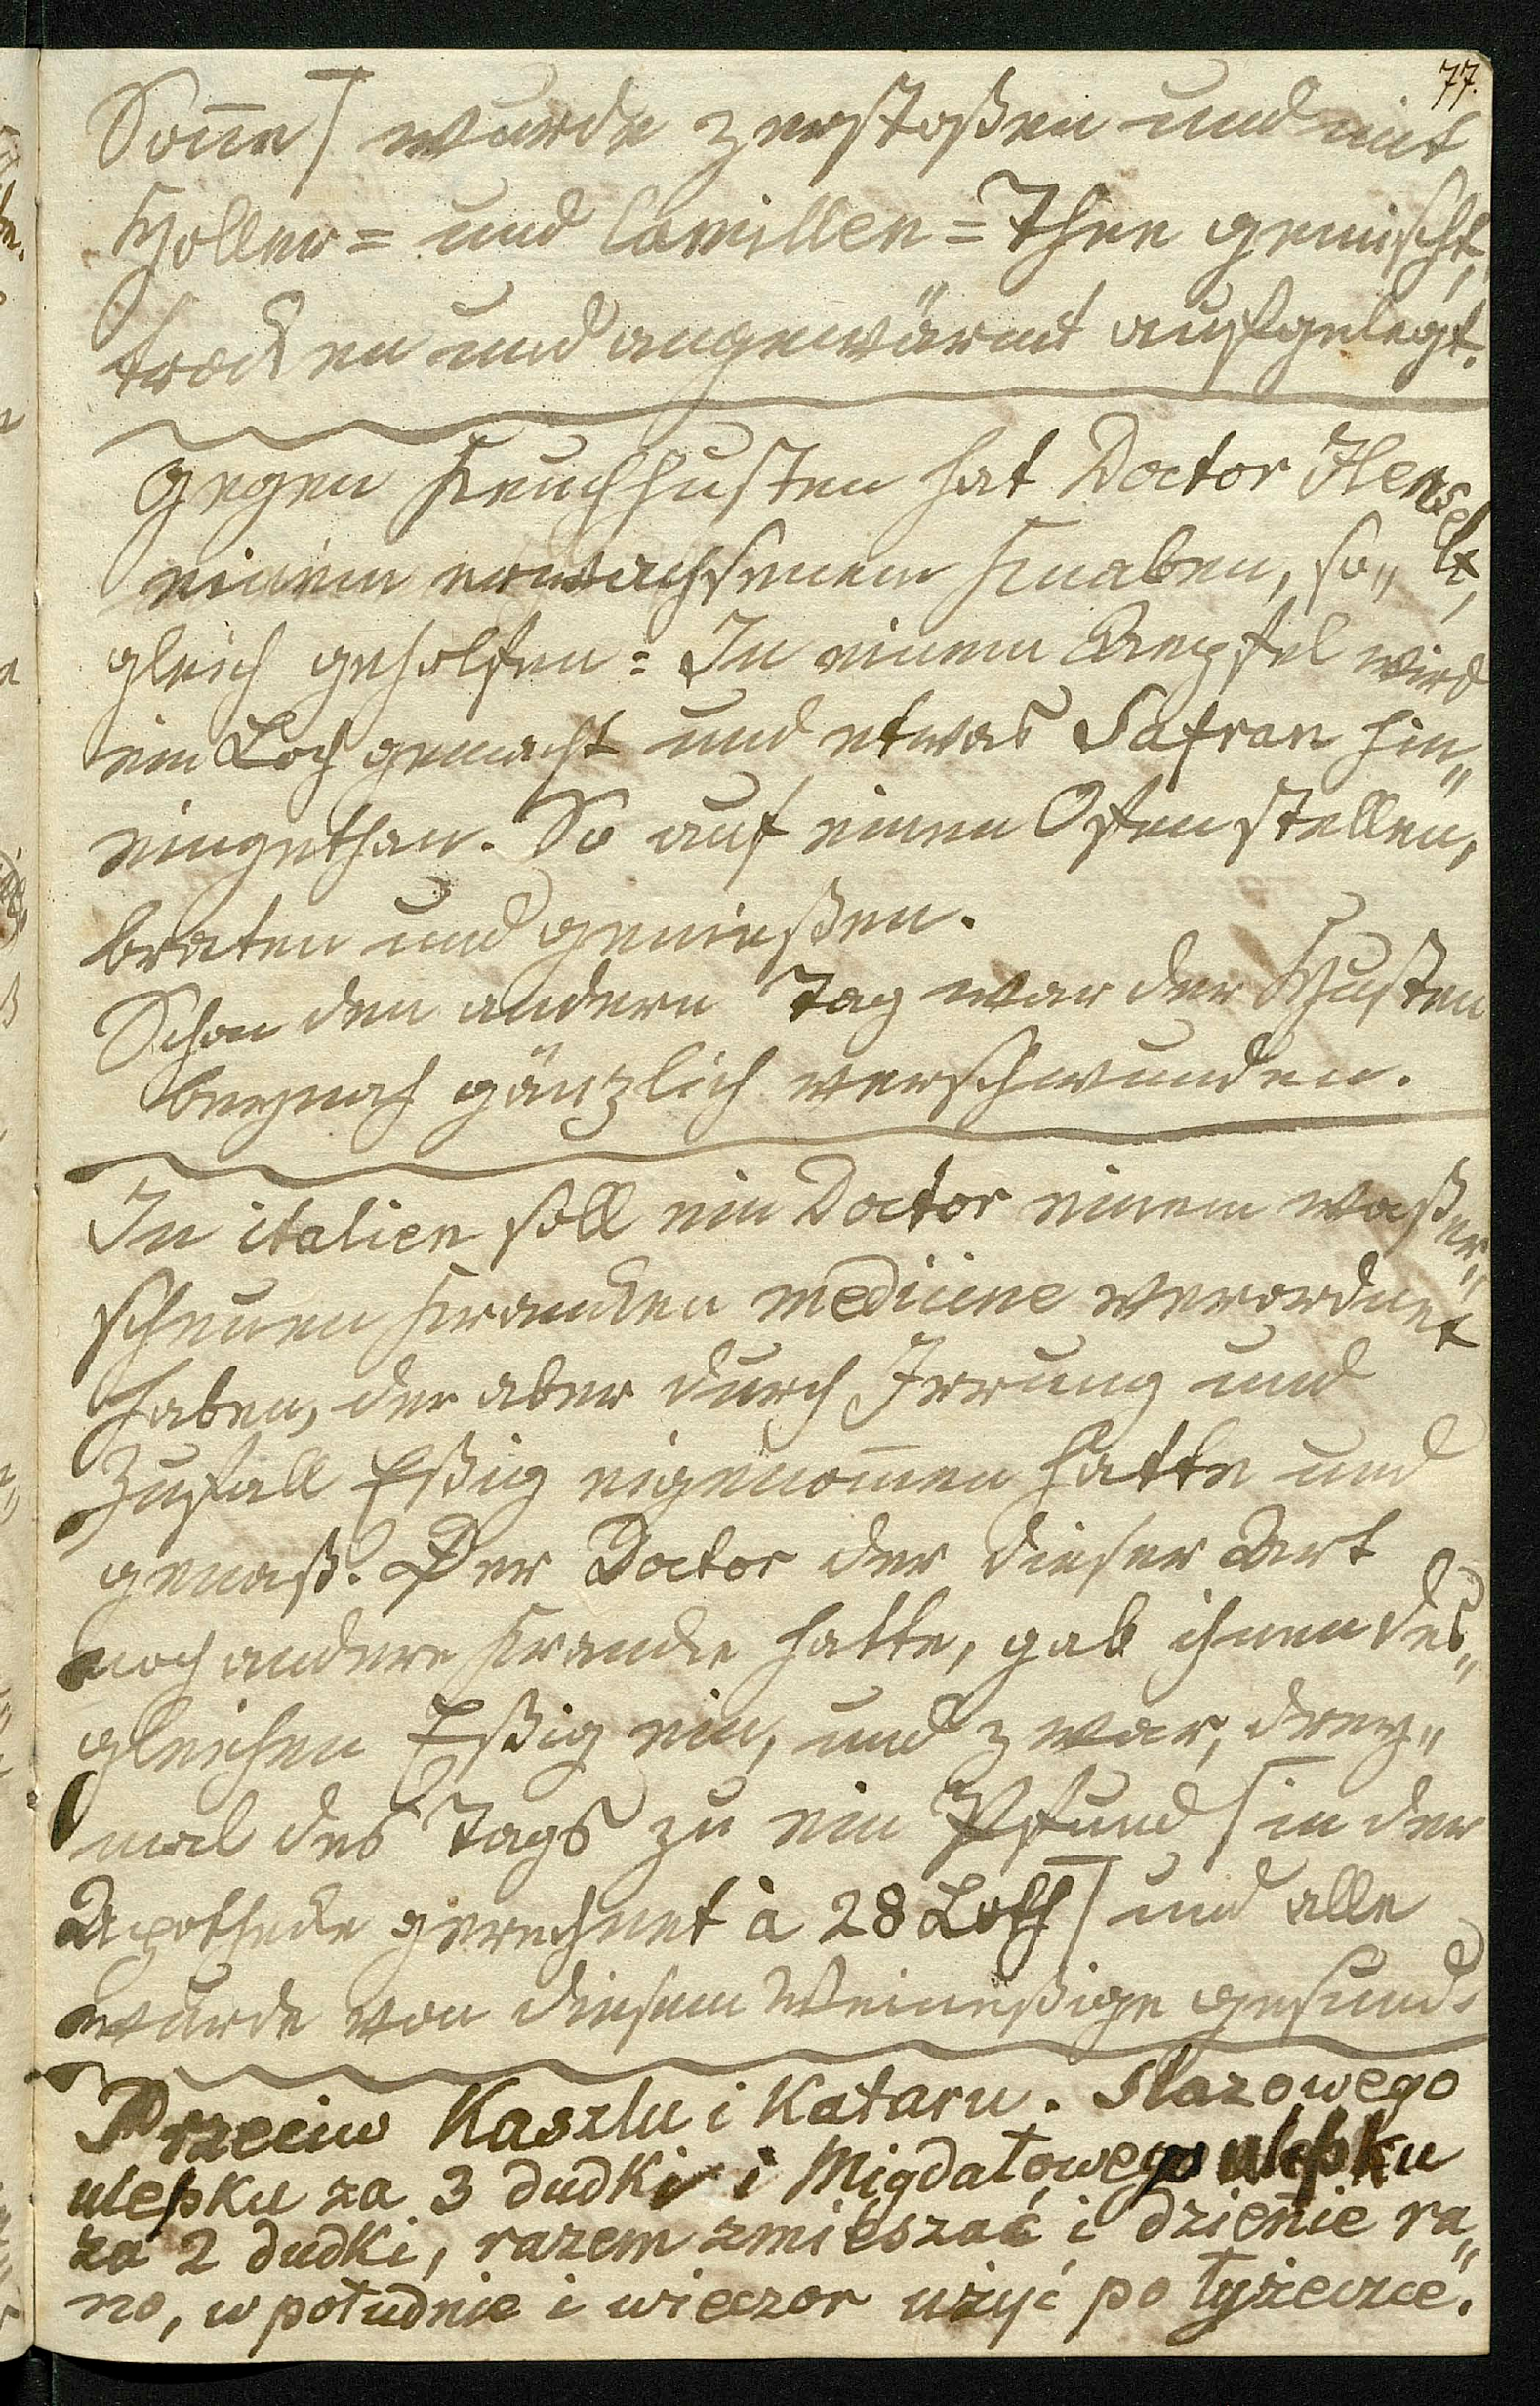 77.
Soñe/ wurde zerstoßen und mit
Holler= und Camillen=Thee gemischt,
trocken und angewärmt aufgelegt.
Gegen Keuchhusten hat Doctor Henselt,
einem erwachsenem Knaben, so„
gleich geholfen: In einem Aepfel wird
ein Loch gemacht und etwas Safran hin„
eingethan. So auf einen Ofen stellen,
braten und genießen.
Schon den andern Tag war der Husten
beynah gänzlich verschwunden.
In italien soll ein Doctor einem waßer„
scheuen Krancken medicine verordnet
haben, der aber durch Irrung und
Zufall Eßig eigenom̄en hatte und
genaß. Der Doctor der dieser Art
noch andere Krancke hatte, gab ihnen des„
gleichen Eßig ein, und zwar, drey„
mal des Tags zu ein Pfund /in der
Apothecke gerechnet à 28 Loth/ und alle
wurde von diesem Weineßige gesund.
Przeciw Kaszlu i Kataru. Slazowego
ulepku za 3 dudki i Migdałowego ulepku
za 2 dudki, razem zmięszać i dzieñie ra„
no, w południe i wieczor użyć po łyżeczce.